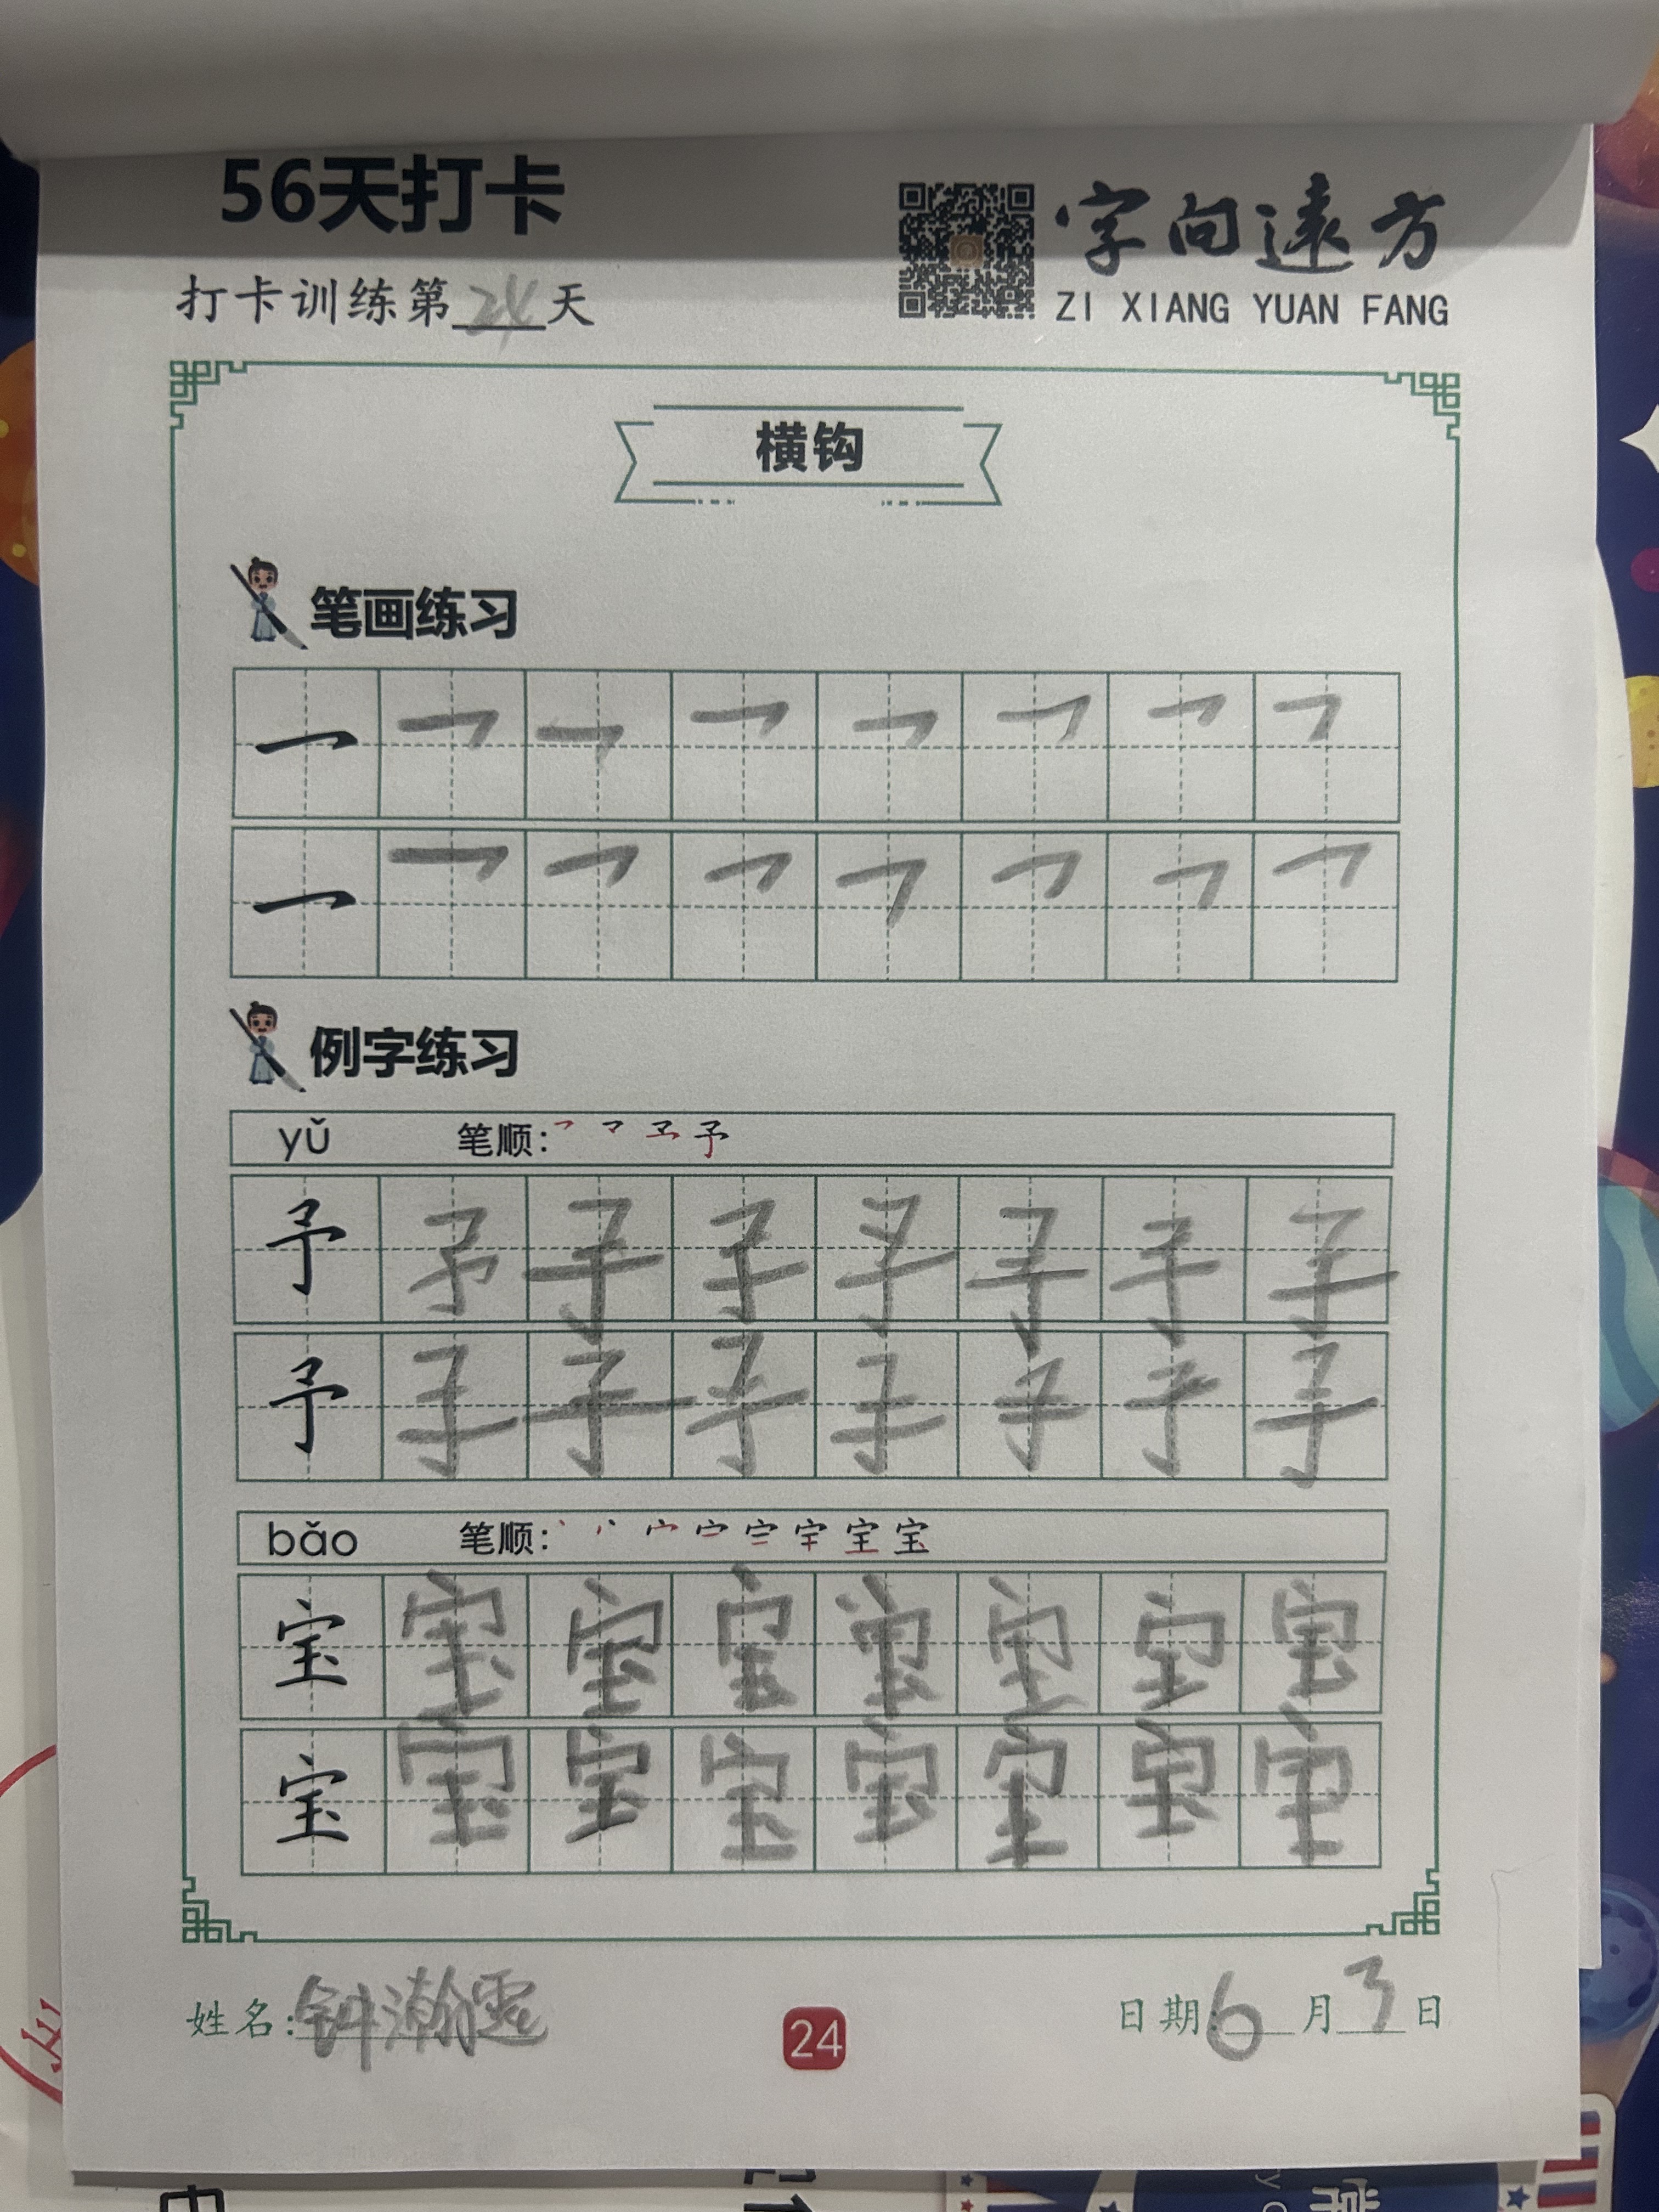 56天打卡
字向遠方
打卡训练第24天
ZI XIANG YUAN FANG
横钩
笔画练习
例字练习
yǔ 笔顺: 予
予 予 予 予 予 予 予 予
予 予 予 予 予 予 予 予
bǎo 笔顺: 宝
宝 宝 宝 宝 宝 宝 宝 宝
宝 宝 宝 宝 宝 宝 宝 宝
姓名: 钟瀚霆
24
日期: 6月3日